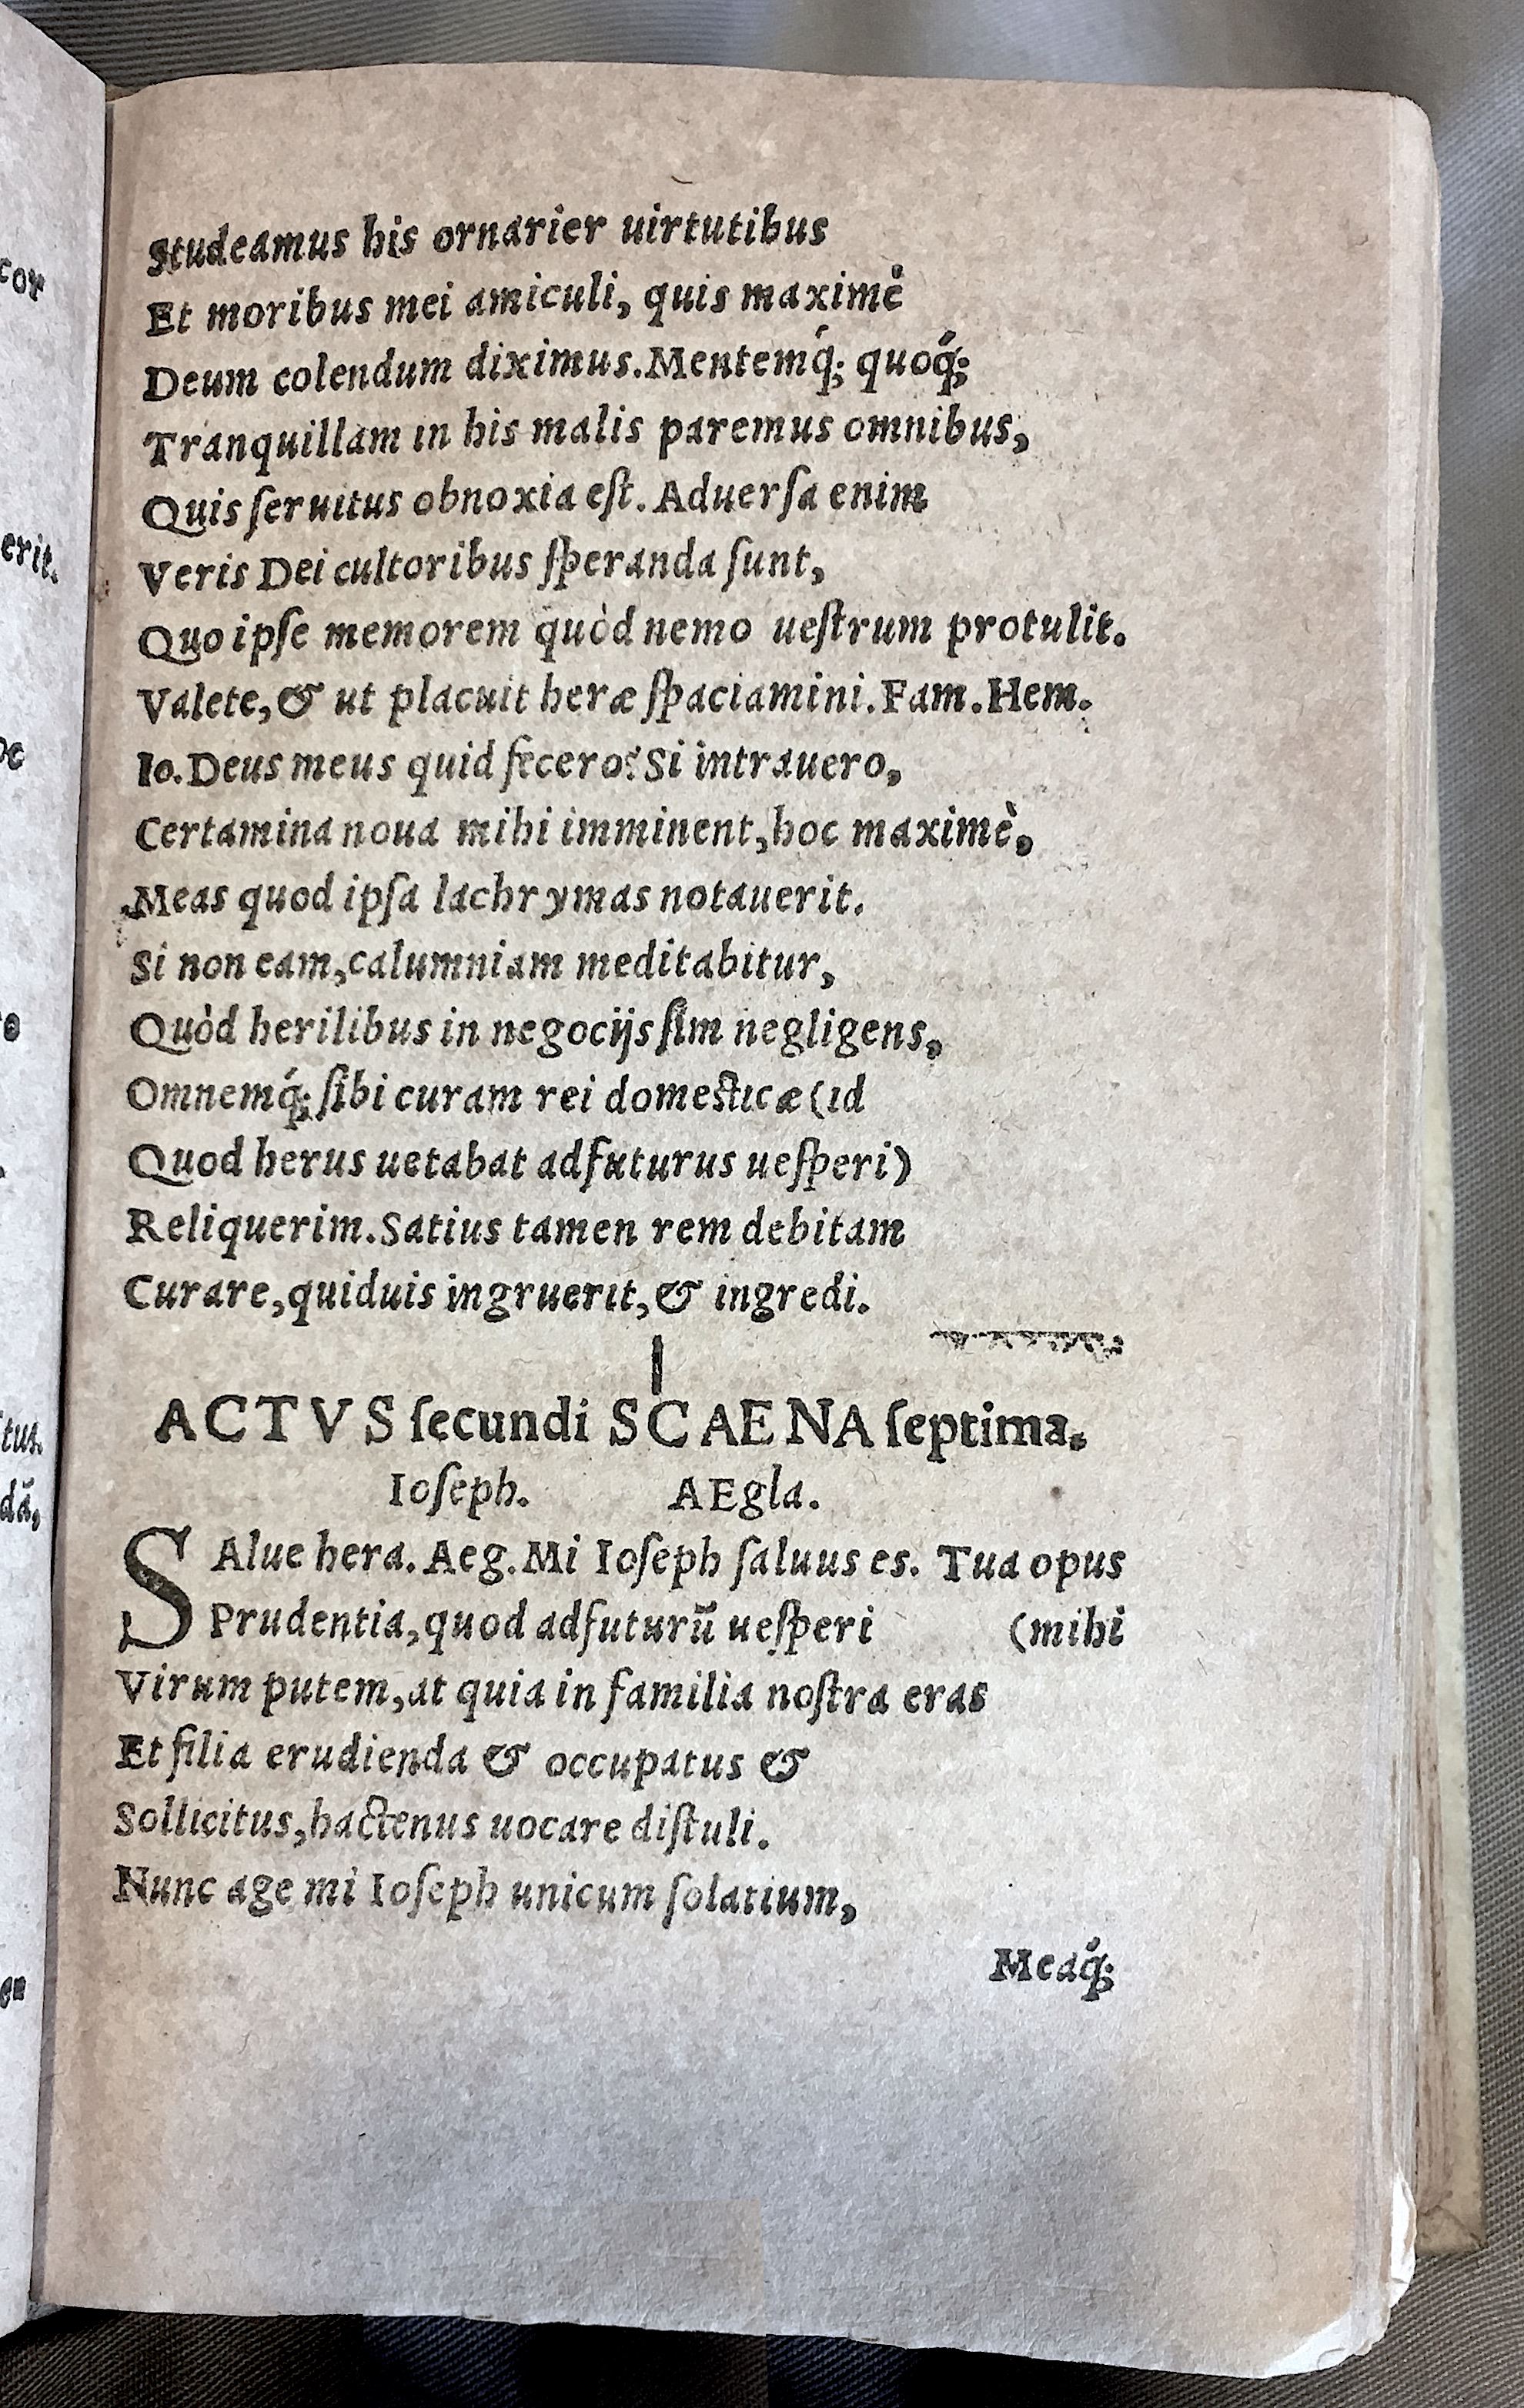 cor
erit.
tus.
dã,
en
Studeamus his ornarier uirtutibus
Et moribus mei amiculi, quis maximè
Deum colendum diximus. Mentemq́; quoq́;
Tranquillam in his malis paremus omnibus,
Quis ſeruitus obnoxia eſt. Aduerſa enim
Veris Dei cultoribus ſperanda ſunt,
Quo ipſe memorem quòd nemo ueſtrum protulit.
Valete, & ut placuit heræ ſpaciamini. Fam. Hem.
Io. Deus meus quid fecero? Si intrauero,
Certamina noua mihi imminent, hoc maximè,
Meas quod ipſa lachrymas notauerit.
Si non eam, calumniam meditabitur,
Quòd herilibus in negocijs ſim negligens,
Omnemq́; ſibi curam rei domeſticæ (id
Quod herus uetabat adfuturus ueſperi)
Reliquerim. Satius tamen rem debitam
Curare, quiduis ingruerit, & ingredi.
ACTVS ſecundi SCAENA ſeptima.
Ioſeph. AEgla.
SAlue hera. Aeg. Mi Ioſeph ſaluus es. Tua opus
Prudentia, quod adfuturũ ueſperi (mihi
Virum putem, at quia in familia noſtra eras
Et filia erudienda & occupatus &
Sollicitus, hactenus uocare diſtuli.
Nunc age mi Ioſeph unicum ſolatium,
Meaq́;